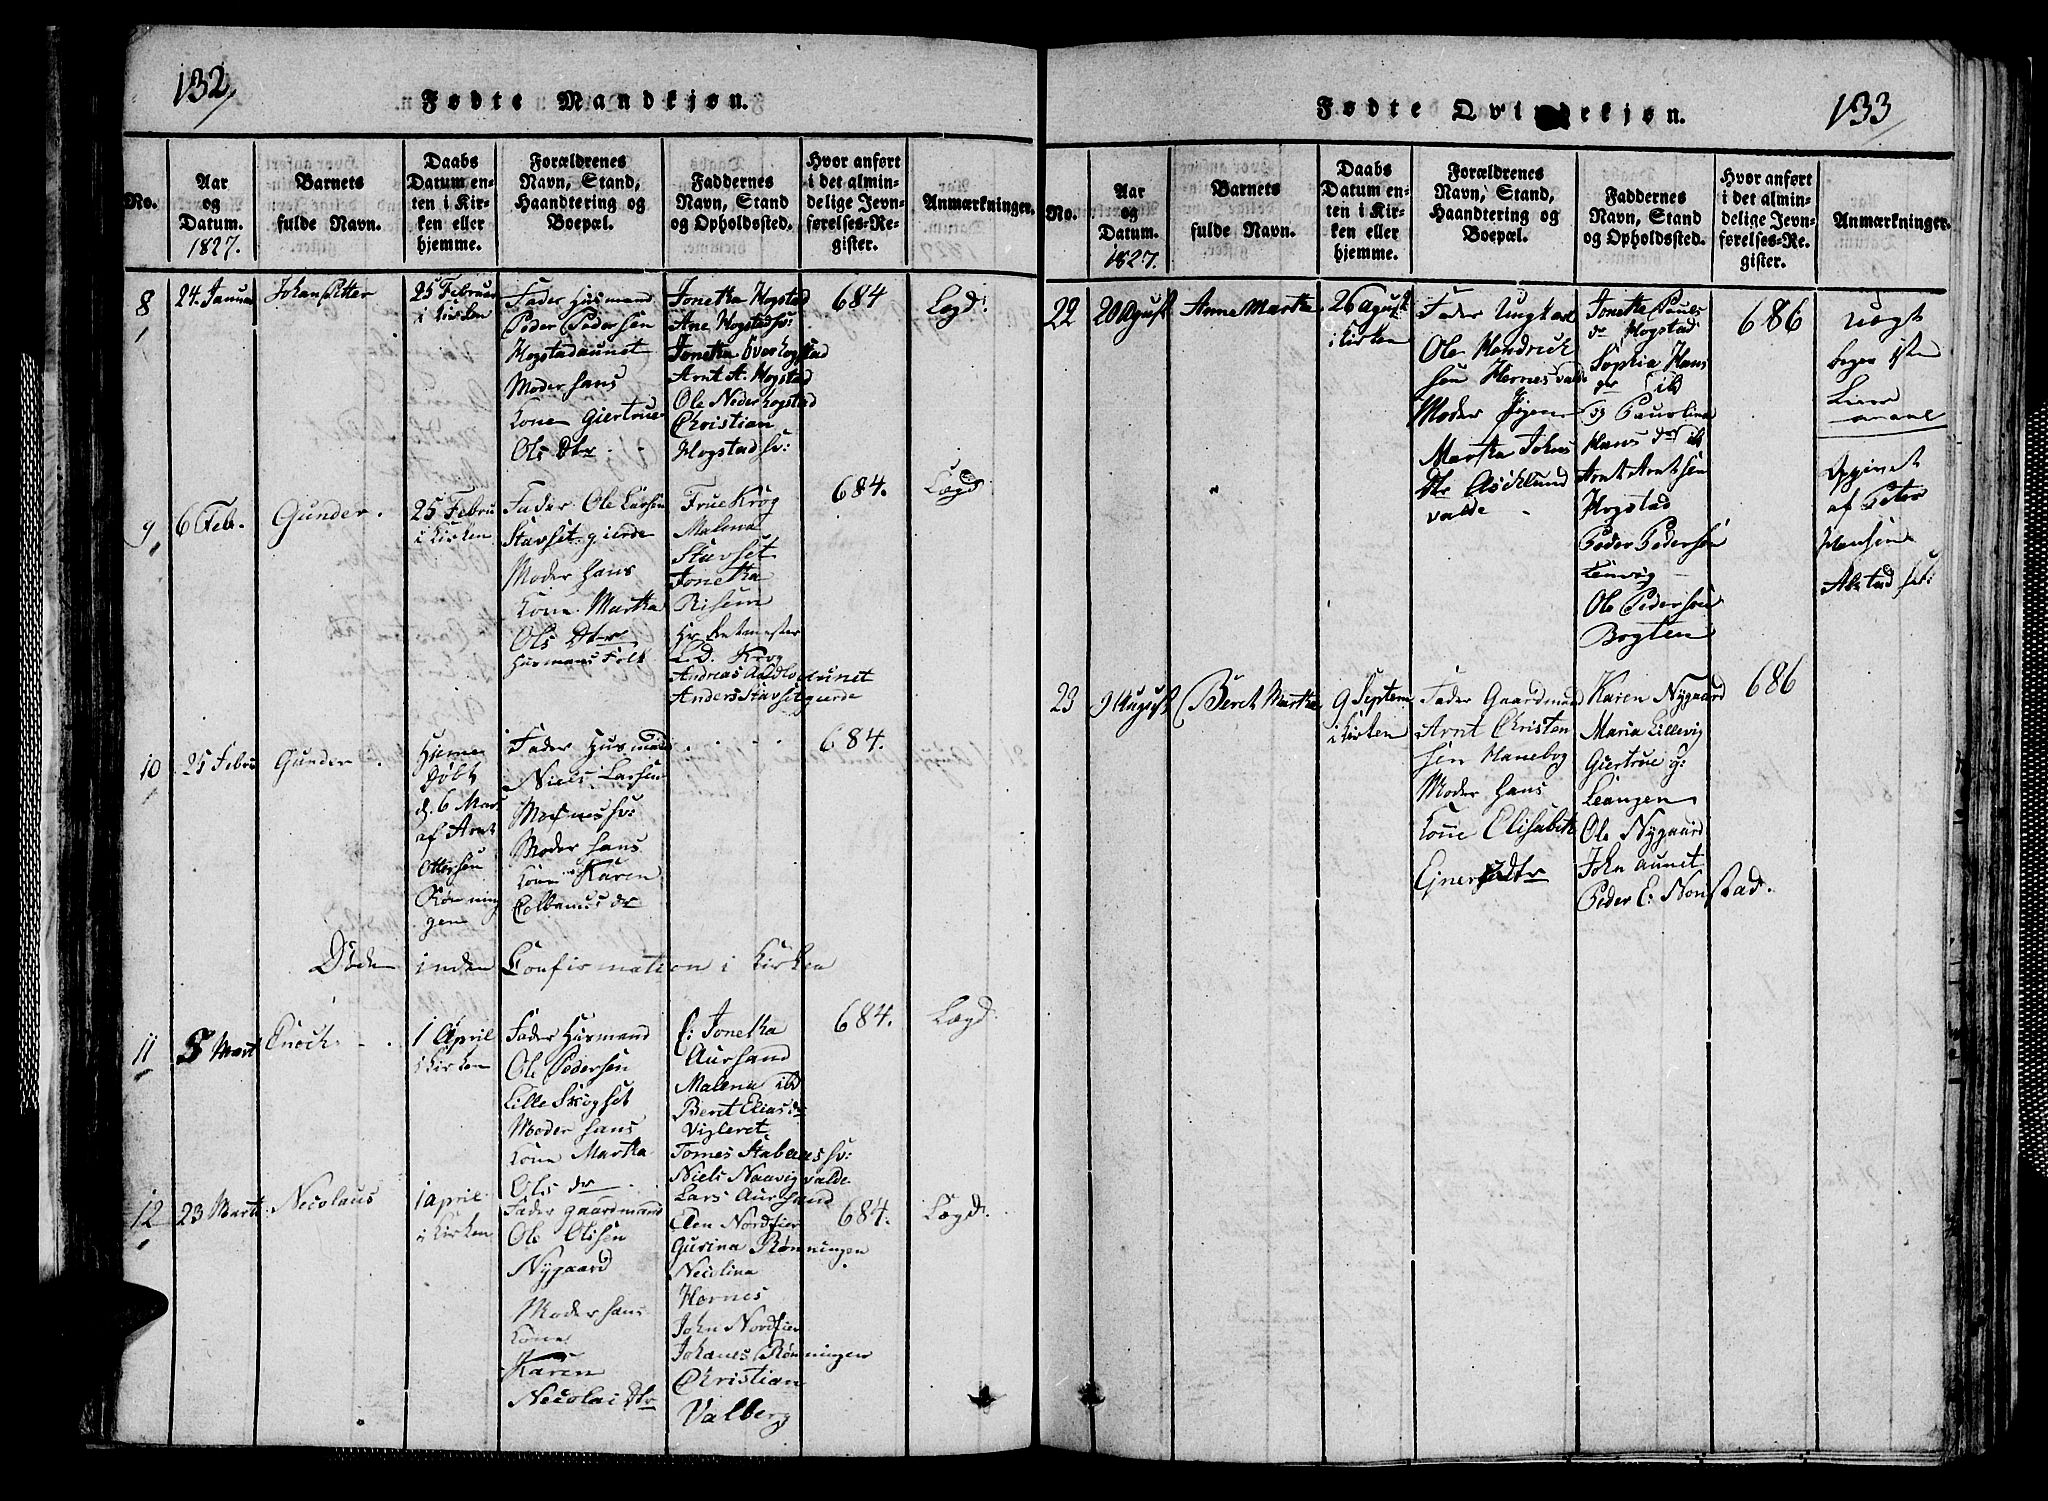 132
Fødte Mandkjøn.
No.
Aar
og
Datum.
1827.
Barnets
fulde Navn.
Daabs
Datum en-
ten i Kir-
ken eller
hjemme.
Forældrenes
Navn, Stand,
Haandtering og
Boepæl.
Faddernes
Navn, Stand
og Opholdssted.
Hvor anført
i det almin-
delige Jevn-
førelses-Re-
gister.
Anmærkninger.
8
24 Januar
Johan Petter
25 Februar
i Kirken
Fader Husmand
Peder Pedersen
Hogstadaunet
Moder hans
Kone Giertrue
Ols Dtr
Jonetha Hogstad
Ane Hogstad sv:
Jonetha Overhogstad
Arnt A. Hogstad
Ole Nederhogstad
Christian
Hogstad sv:
684
Lægd:
9
6 Feb.
Gunder.
25 Febru
i Kirken
Fader Ole Larsen
Stavset gierde
Moder hans
Kone Martha
Ols Dtr
Husmans Folk
Frue Krog
Malena
Stavset
Jonetha
Risem
Hr Rentemester
L.D. Krog
Andreas aunet
Anders Stavsetgierde
684.
Lægd
10
25 Febru
Gunder.
Hjeme
Døbt
d. 6 Mar.
af Arnt
Ottersen
Rønnin
gen
Fader Husmand
Niels Larsen
sv:
Moder hans
Kone Karen
Colbanus dr
684.
Døden inden Confirmation i Kirken
11
5 Mart
Enoch
1 April
i Kirken
Fader Husmand
Ole Pedersen
Lille Skogset
Moder hans
Kone Martha
Ols dr
E: Jonetha
Aursand
Malena ibd
Beret Elias dr
Vigleret
Tomes Stabenes sv:
Niels Naavigvalde
Lars Aursand
684.
Lægd.
12
23 Marti
Necolaus
1 april
i Kirken
Fader gaardmand
Ole Olsen
Nygaard
Moder hans
Kone
Karen
Necolai Dtr
Elen Nordfier
Gurina Rønningen
Necolina
Hernes
John Nordfier
Johanes Rønningen
Christian
Valberg
684.
Lægd.
133
Fødte Qvindekjøn.
No.
Aar
og
Datum.
1827.
Barnets
fulde Navn.
Daabs
Datum en-
ten i Kir-
ken eller
hjemme.
Forældrenes
Navn, Stand,
Haandtering og
Boepæl.
Faddernes
Navn, Stand
og Opholdssted.
Hvor anført
i det almin-
delige Jevn-
førelses-Re-
gister.
Anmærkninger.
22
20 August
Anne Martha
26 agust
i Kirken
Fader Ungkarl
Ole Hendrick
sen Hernesvald
Moder Pigen
Martha Johns
Dtr Asklund
valde
Jonetha Pauls
dr Hogstad
Sophia Hans
dr ib
og Paulina
Hans dr ib
Arnt Arntsen
Hogstad
Peder Pedersen
Lenvig
Ole Pedersen
Bogten
686
Uægt
begge 1ste
Leier
maal
Oppivet
af Peter
Hansen
Alstad sv:
23
9 August
Beret Martha
9 Septem
i Kirken
Fader Gaardmand
Arnt Christen
sen Hanebog
Moder hans
Kone Elisabeth
Ejners dtr
Karen Nygaard
Maria Lillevig
Giertrue g:
Leangen
Ole Nygaard
John aunet
Peder E: Nonstad.
686